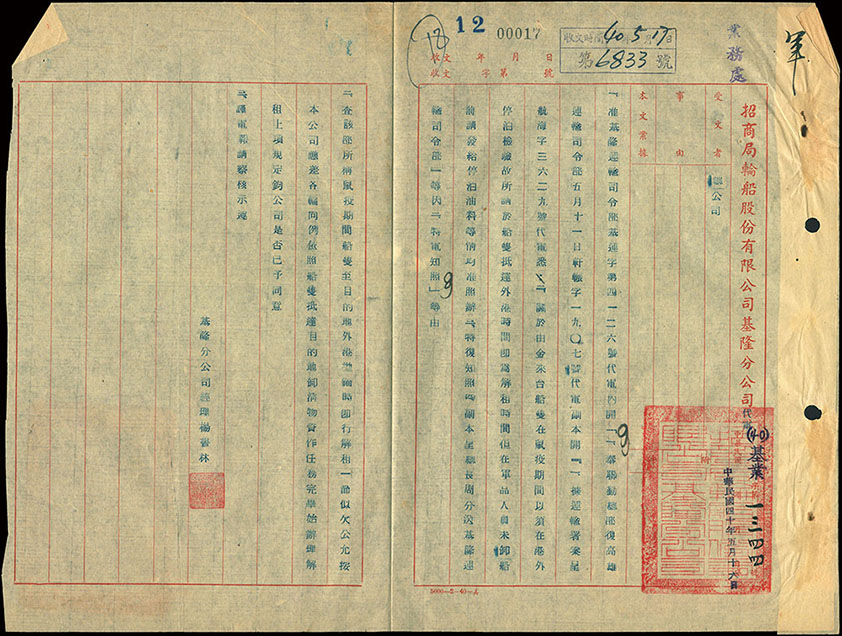 軍
業務處
收文時間40.5月17日
第6833號
12
00017
收文 年 月 日
收文 字第 號
招商局輪船股份有限公司基隆分公司代電
(40)基業一三四四
中華民國四十年五月十六日
受文者
總公司
事由
本文
一、准基隆運輸司令部基運字第四一二六號代電內開「一、奉聯勤總部復高雄
運輸司令部五月十一日軒帳字一九〇七號代電副本開『一、據運輸署案呈
航海字三六二九號代電悉二、關於由金來台船隻在鼠疫期間必須在港外
停泊檢驗故所請於船隻抵達外港時間即為解租時間但在軍品人員未卸船
前請發給停泊油料等情均准照辦三、特復知照四、副本呈總長周分送基隆運
輸司令部』等因二、特電知照」等由
二、查該部所稱鼠疫期間船隻至目的地外港拋錨時即行解租一節似欠公允按
本公司應差各輪向例依照船隻抵達目的地卸清物資作任務完畢始辦理解
租上項規定鈞公司是否已予同意
三、謹電報請察核示遵
基隆分公司經理楊書林
5000-2-40-五